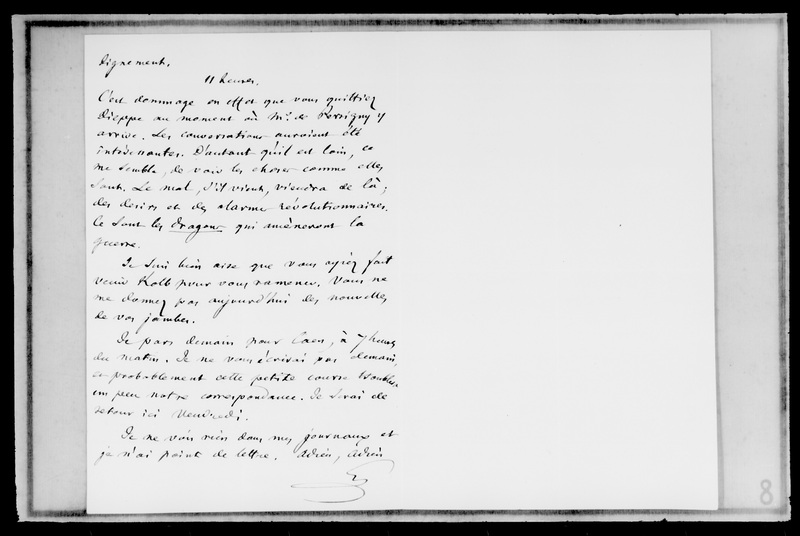 dignement.
11 heures.
C'est dommage en effet que vous quittiez
Dieppe au moment où Mr. de Persigny y
arrive. Les conversations auroient été
intéressantes. D'autant qu'il est loin, ce
me semble, de voir les choses comme elles
sont. Le mal, s'il vient, viendra de là;
des desirs et des alarmes révolutionnaires.
Ce sont les dragons qui amèneront la
guerre.
Je suis bien aise que vous ayiez fait
venir Kolb pour vous ramener. Vous ne
me donnez pas aujourd'hui des nouvelles
de vos jambes.
Je pars demain pour Caen, à 7 heures
du matin. Je ne vous écrirai pas demain,
et probablement cette petite course troublera
un peu notre correspondance. Je serai de
retour ici Vendredi.
Je ne vois rien dans mes journaux et
je n'ai point de lettre. Adieu, Adieu
8